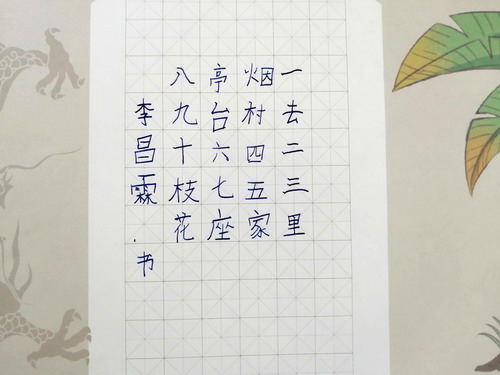 一去二三里
烟村四五家
亭台六七座
八九十枝花
李昌霖.书